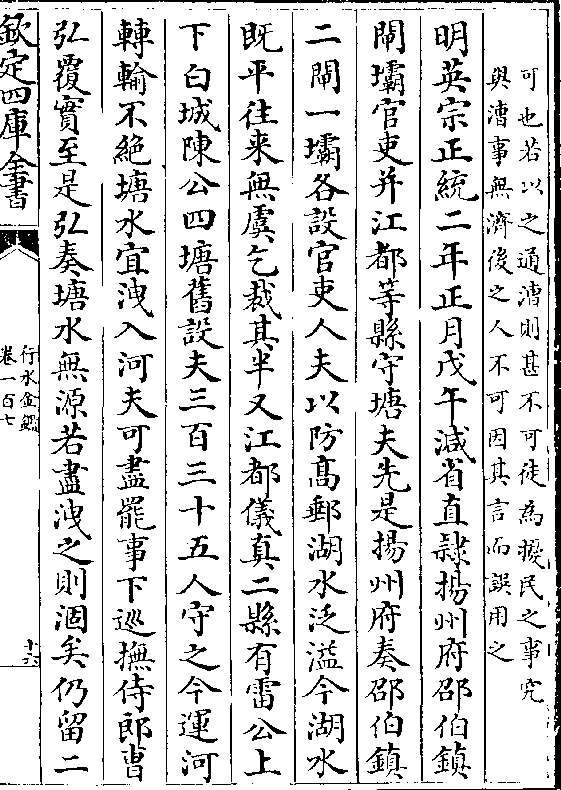 可也若以之通漕則甚不可徒為擾民之事究
與漕事無濟後之人不可因其言而誤用之
明英宗正統二年正月戊午減省直隷揚州府邵伯鎮
閘壩官吏并江都等縣守塘夫先是揚州府奏邵伯鎮
二閘一壩各設官吏人夫以防髙郵湖水泛溢今湖水
既平往来無虞乞裁其半又江都儀真二縣有雷公上
下白城陳公四塘舊設夫三百三十五人守之今運河
轉輸不絶塘水宜洩入河夫可盡罷事下巡撫侍郎曺
弘覆實至是弘奏塘水無源若盡洩之則涸矣仍留二
欽定四庫全書
行水金鑑
卷一百七
十六